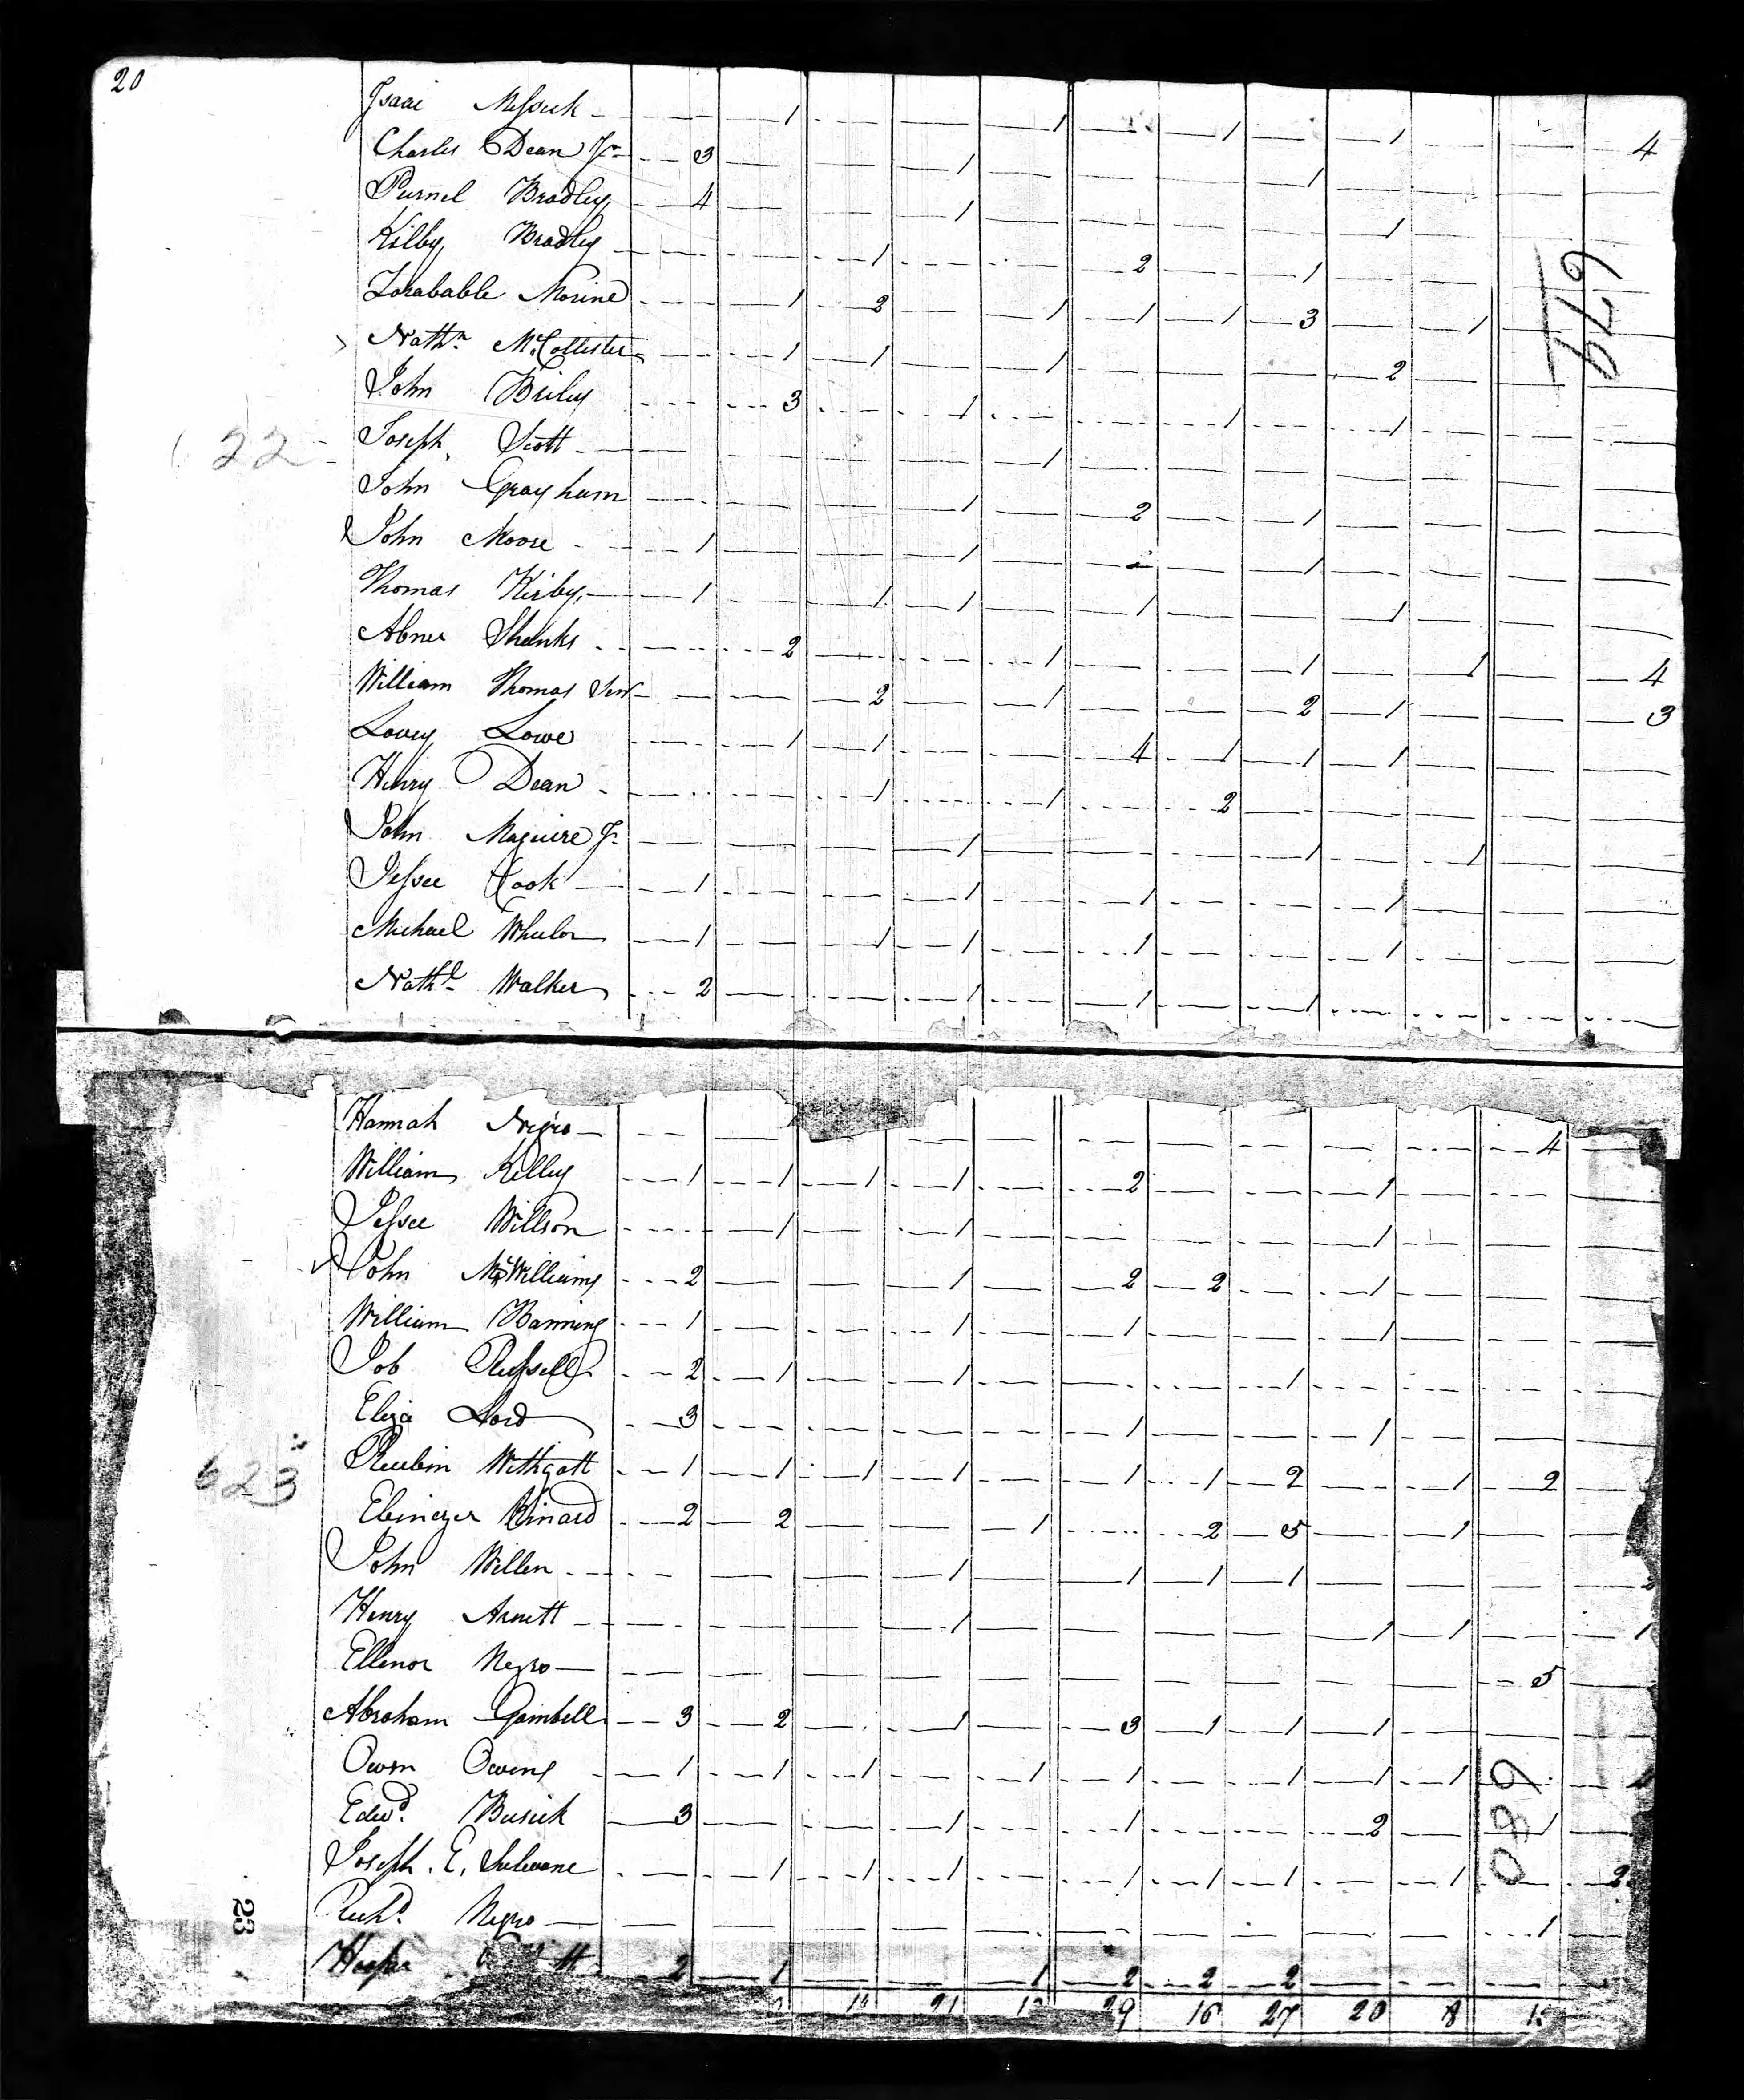 20
Isaac Messick 1 1 1 1 4
Charles Dean Jr 3 1 1
Purnel Bradley 4 1 1
Kilby Bradley 1 2 1
679
Zorabable Morine 1 2 1 1 1 3 1
Nathn McCollister 1 1 1 2
John Briley 3 1 1 1
22
Joseph Scott 1
John Grayham 1 2 1
John Moore 1 1 1
Thomas Kirby 1 1 1 1 1
Abner Shanks 2 1 1 1 4
William Thomas Senr 2 1 2 1 3
Lovey Lowe 1 1 4 1 1 1
Henry Dean 1 1 2
John Maguire Jr 1 1 1
Jessee Cook 1 1 1 1
Michael Wheelor 1 1 1 1 1
Nathl Walker 2 1 1 1
Hannah Negro 4
William Kelley 1 1 1 1 2 1
Jessee Willson 1 1 1
John McWilliams 2 1 2 2 1
William Banning 1 1 1 1
Job Russell 2 1 1 1
Eliza Lord 3 1 1
623
Reubin Withgott 1 1 1 1 1 1 2 1 2
Ebinezer Kinard 2 2 1 2 5 1
John Willen 1 1 1 1 2
Henry Arnett 1 1 1 1
Ellenor Negro 5
Abraham Gambell 3 2 1 3 1 1 1
Owen Owens 1 1 1 1 1 1 1 1
680
Edwd Busick 3 1 1 2 1
Joseph E. Sulivane 1 1 1 1 1 1 1 2
23
Richd Negro 1
2 1 1 2 2 2
21 29 16 27 20 8